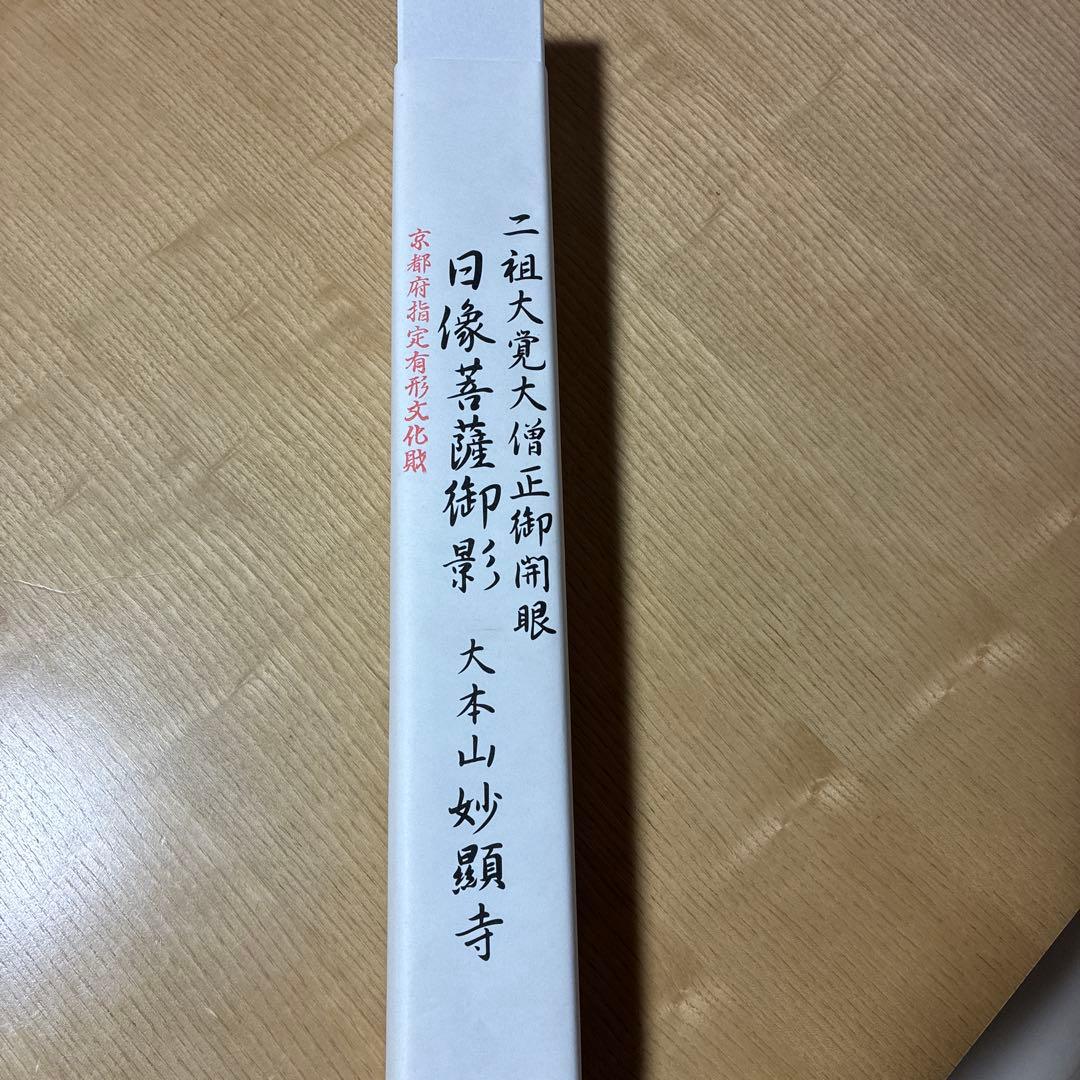 二祖大覚大僧正御開眼
日像菩薩御影 大本山妙顯寺
京都府指定有形文化財